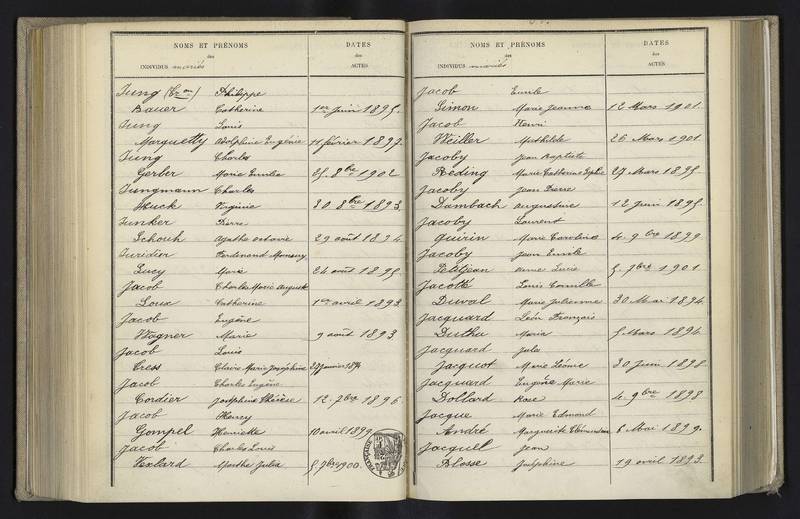 NOMS ET PRÉNOMS
des
INDIVIDUS mariés
DATES
des
ACTES
Jung (Cron) Philippe
Bauer Catherine 1er Juin 1895.
Jung Louis
Marquetty Adolphine Eugénie 11 février 1897.
Jung Charles
Gerber Marie Emilie 25. 8bre 1902
Jungmann Charles
Huck Virginie 30 8bre 1893.
Junker Pierre
Schouh Agathe 29 août 1894.
Juridier Ferdinand
Lucy Marie 24 août 1895
Jacob Charles Marie Auguste
Loux Catherine 1er avril 1893
Jacob Eugène
Wagner Marie 9 août 1893
Jacob Louis
Cress Claire Marie Joséphine
Jacob Charles Eugène
Cordier Joséphine Thérèse 12. 7bre 1896
Jacob Henry
Gompel Henriette 10 avril 1899
Jacob Charles Louis
Texlard Marthe Julia 5 7bre 1900.
NOMS ET PRÉNOMS
des
INDIVIDUS mariés
DATES
des
ACTES
Jacob Emile
Simon Marie Jeanne 12 Mars 1901.
Jacob Henri
Weiller Mathilde 26 Mars 1901.
Jacoby Jean Baptiste
Reding Marie Catherine Sophie 27 Mars 1895.
Jacoby Jean Pierre
Dambach Augustine 12 Juin 1895.
Jacoby Laurent
Quirin Marie Caroline 4. 9bre 1899
Jacoby Jean Emile
Petitjean Anne Lucie 5. 7bre 1901.
Jacotté Louis Camille
Duval Marie Julienne 30 Mai 1894.
Jacquard Léon François
Duthu Maria 5 Mars 1894.
Jacquard Jules
Jacquot Marie Léonie 30 Juin 1898
Jacquard Eugène Marie
Dollard Rose 4. 9bre 1898
Jacque Marie Edmond
André Marguerite 6 Mai 1899.
Jacquel Jean
Blosse Joséphine 19 avril 1893.